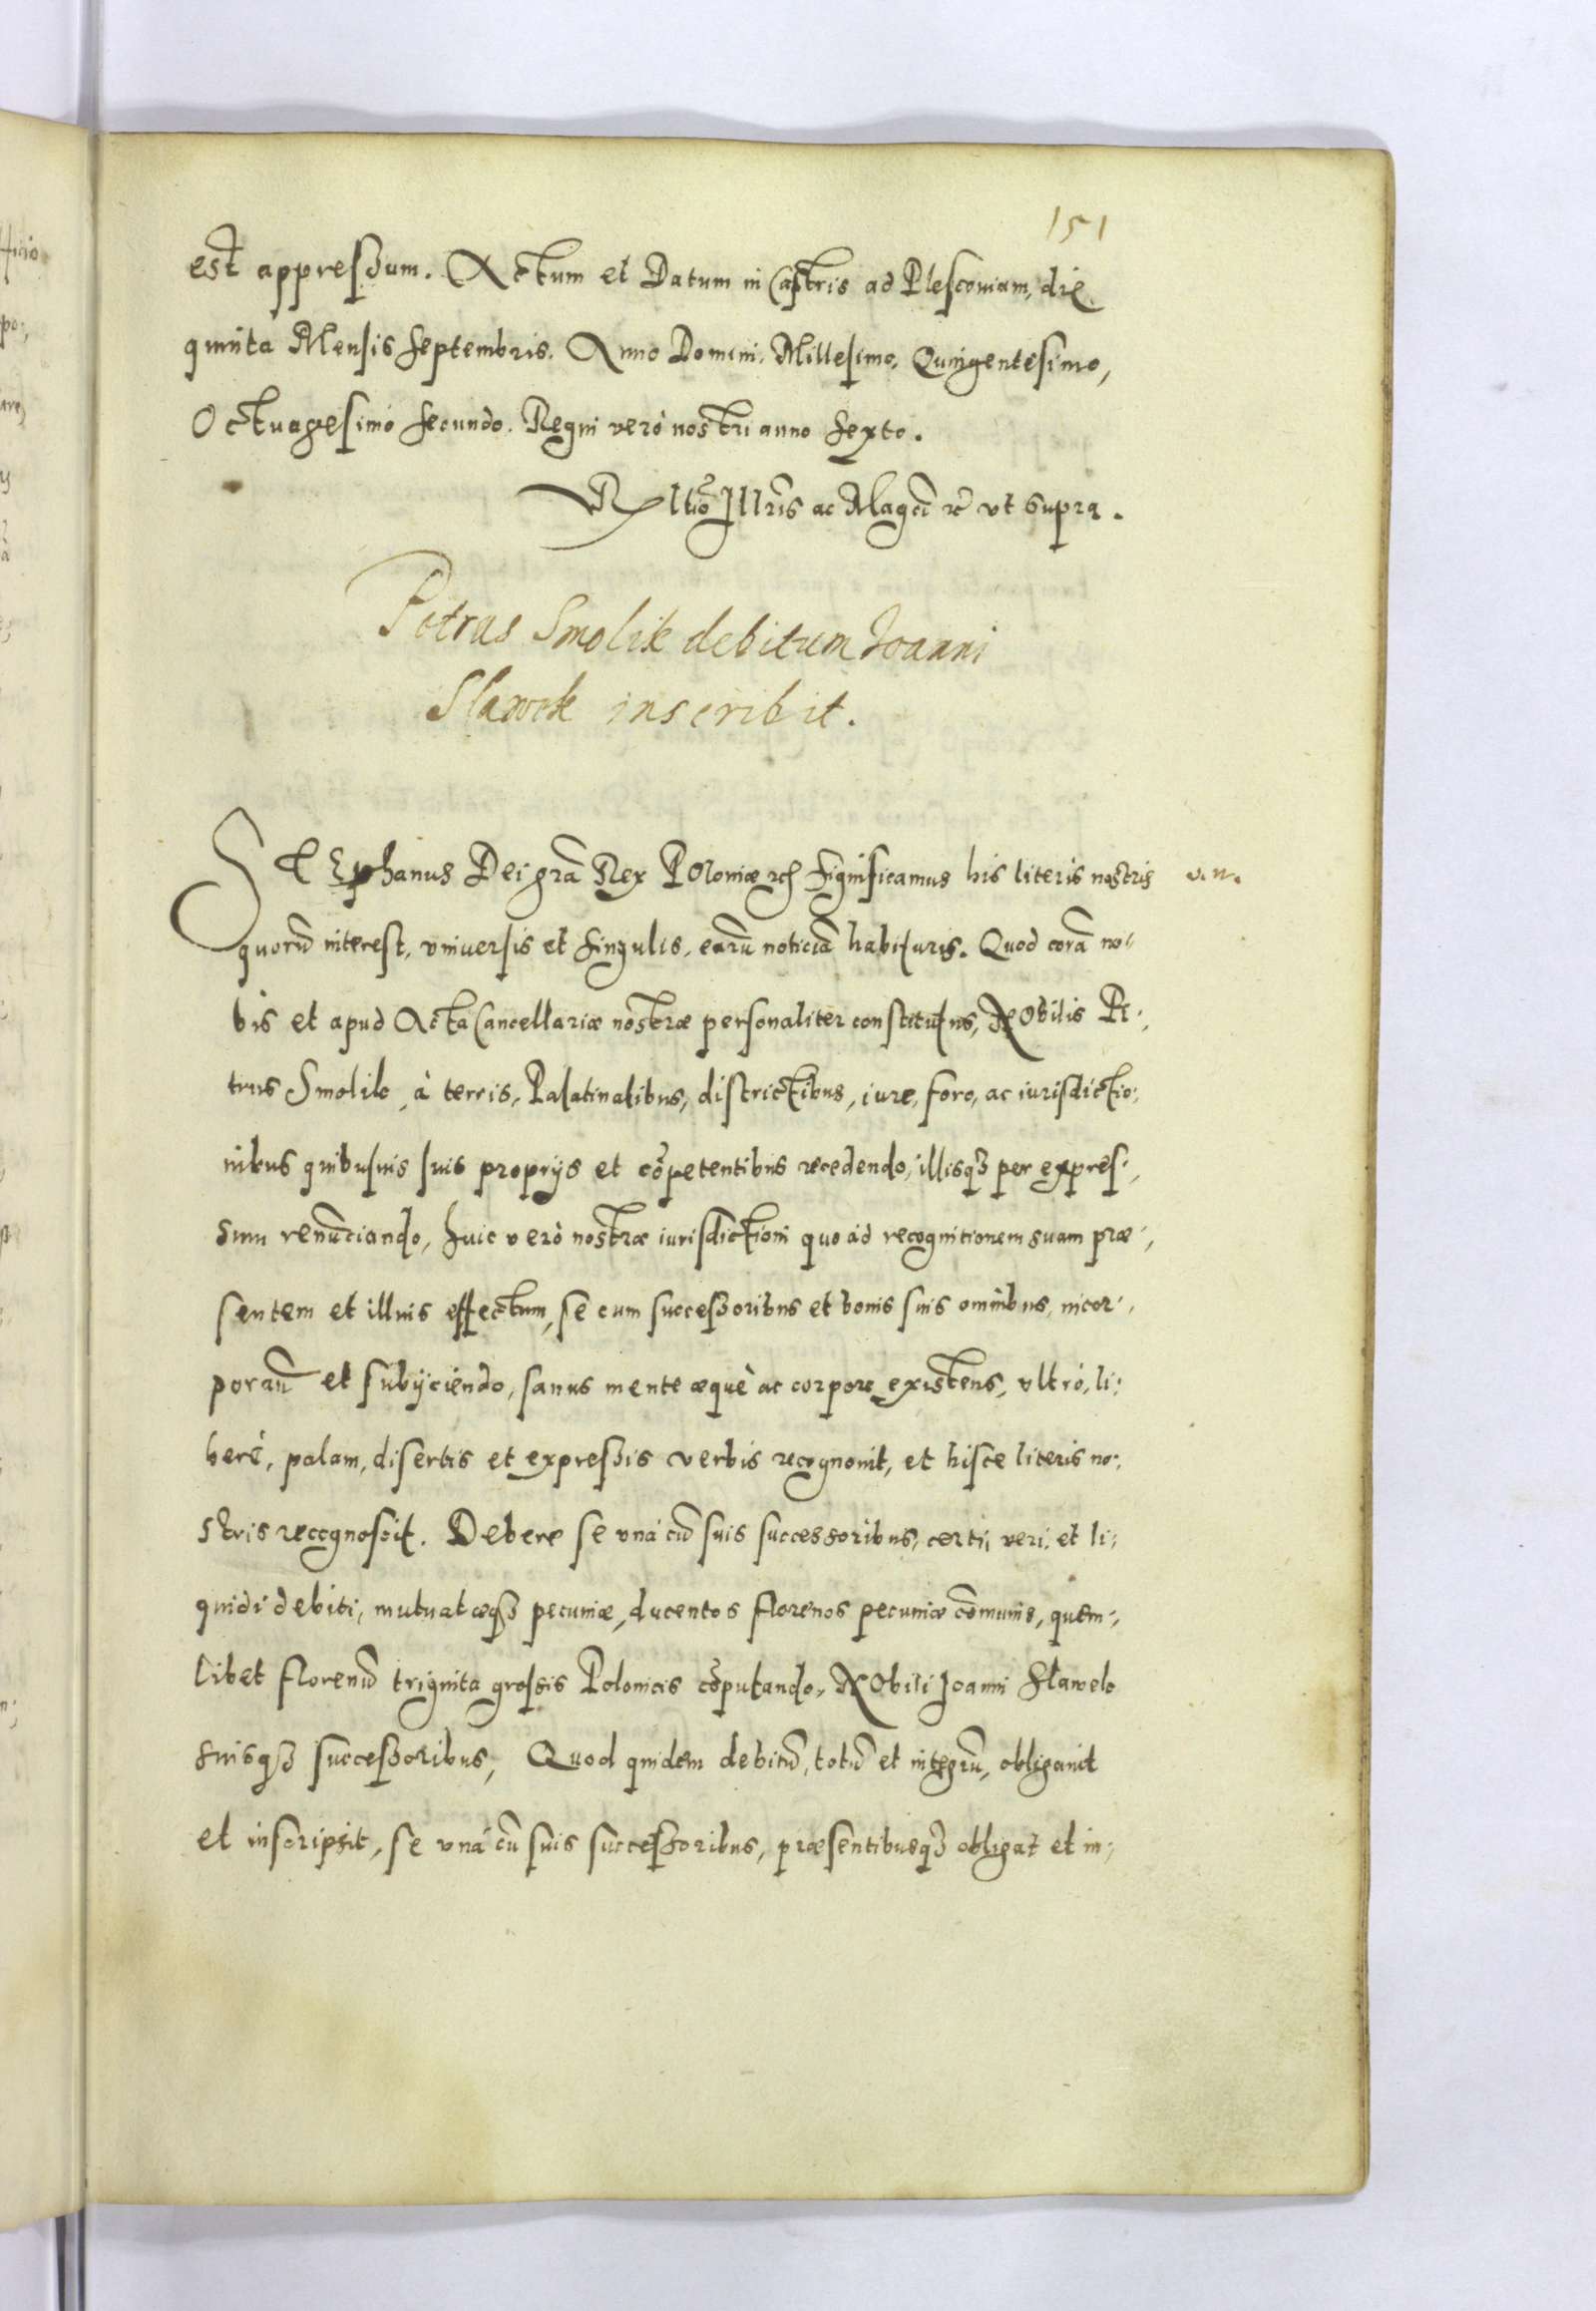 151
est appressum. Actum et Datum in Castris ad Plesconiam, die
quinta Mensis Septembris. Anno Domini. Millesimo. Quingentesimo,
Octuagesimo Secundo. Regni verò nostri anno Sexto.
Rltio Illris ac Magci rc vt supra.
Petrus Smolik debitum Joanni
Slawek inscribit.
STEphanus Dei gra Rex POloniæ rc Significamus his literis nostris v. n.
quorū interest, vniuersis et singulis, earū noticiā habituris. Quod corā no-
bis et apud Acta Cancellariæ nostræ personaliter constitutus, NObilis Pe-
trus Smolik, à terris, Palatinatibus, districtibus, iure, foro, ac iurisdictio-
nibus quibusuis suis proprijs et cōpetentibus recedendo, illisq3 per expres-
sum renūciando, huic verò nostræ iurisdictioni quo ad recognitionem suam præ-
sentem et illius effectum, se cum successoribus et bonis suis omnibus, incor-
poran̄ et subijciendo, sanus mente æquè ac corpore existens, vltrò, li-
berè, palam, disertis et expressis verbis recognouit, et hisce literis no-
stris recognoscit. Debere se vnà cū suis successoribus, certi, veri, et li-
quidi debiti, mutuatæq3 pecuniæ, ducentos florenos pecuniæ cōmunis, quem-
libet florenū triginta grossis Polonicis cōputando, NObili Joanni Slawek
suisq3 successoribus, Quod quidem debitū, totū et integrū, obligauit
et inscripsit, se vnà cū suis successoribus, præsentibusq3 obligat et in-